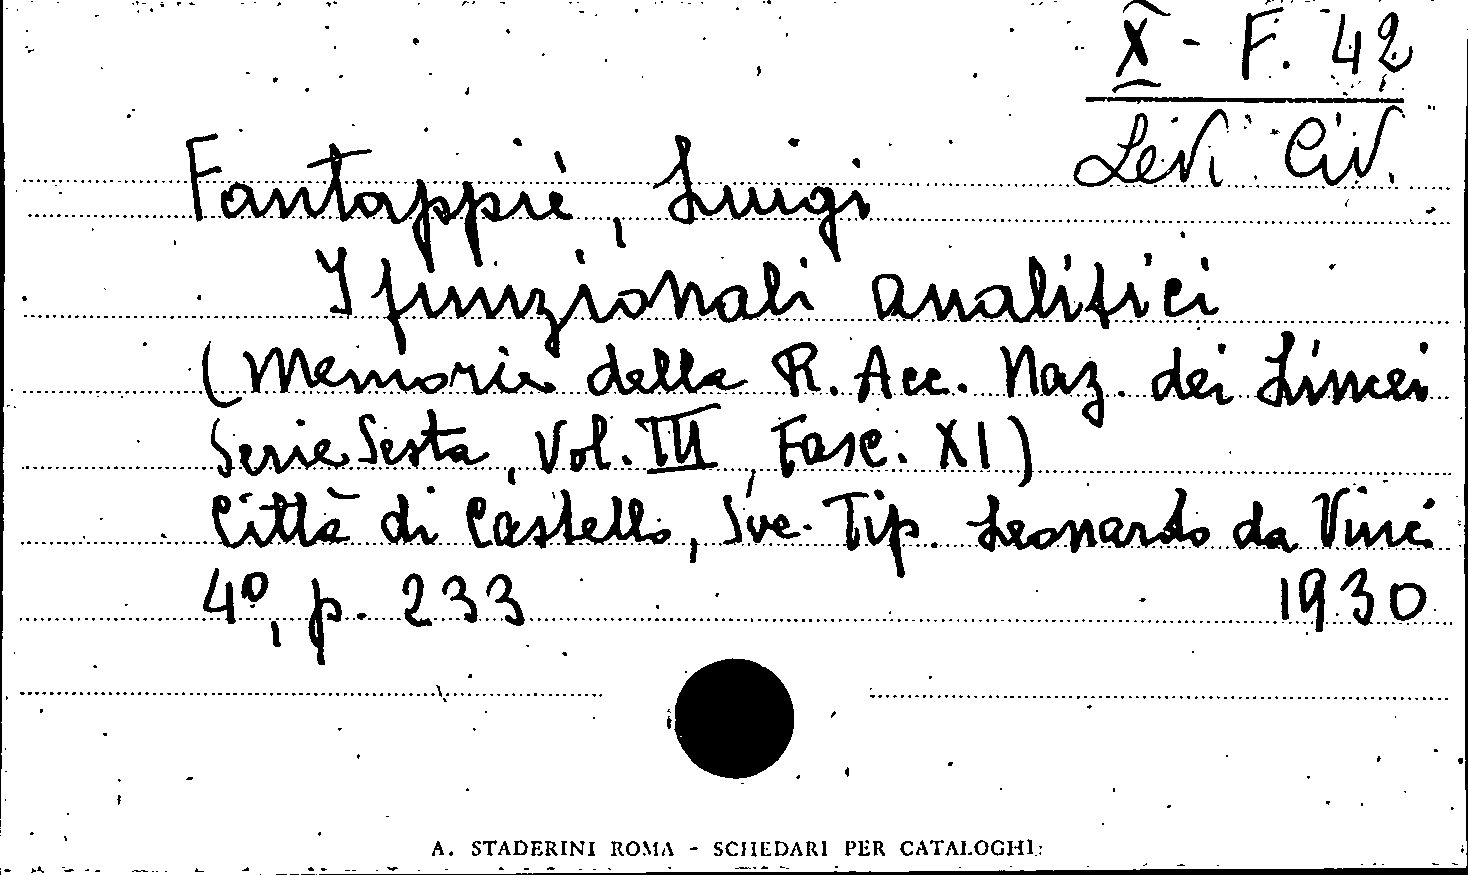 X - F. 42
Levi Civ.
Fantappiè, Luigi
I funzionali analitici
(Memorie della R. Acc. Naz. dei Lincei
Serie Sesta, Vol. III, Fasc. XI)
Città di Castello, Soc. Tip. Leonardo da Vinci
4º, p. 233 1930
A. STADERINI ROMA - SCHEDARI PER CATALOGHI